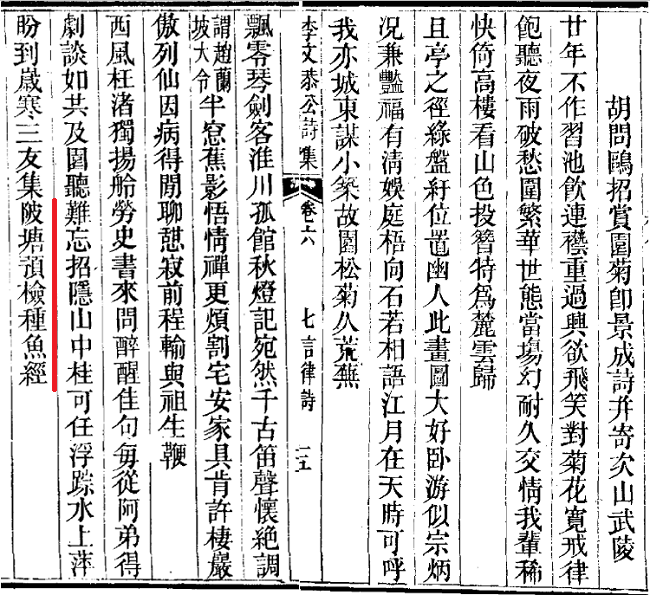 胡問鷗招賞園菊卽景成詩幷寄次山武陵
廿年不作習池飲連襼重過興欲飛笑對菊花寬戒律
飽聽夜雨破愁圍繁華世態當場幻耐久交情我輩稀
快倚高樓看山色投簪特爲麓雲歸
且亭之徑綠盤紆位置幽人此畫圖大好卧游似宗炳
况兼豔福有淸娛庭梧向石若相語江月在天時可呼
我亦城東謀小築故園松菊久荒蕪
李文恭公詩集 卷六 七言律詩
飄零琴劍客淮川孤館秋燈記宛然千古笛聲懷絶調
謂趙蘭坡大令半窓蕉影悟情禪更煩割宅安家具肯許棲巖
傲列仙因病得閒聊慰寂前程輸與祖生鞭
西風枉渚獨揚舲勞史書來問醉醒佳句每從阿弟得
劇談如共及圍聽難忘招隱山中桂可任浮踪水上萍
盼到歲寒三友集陂塘預檢種魚經